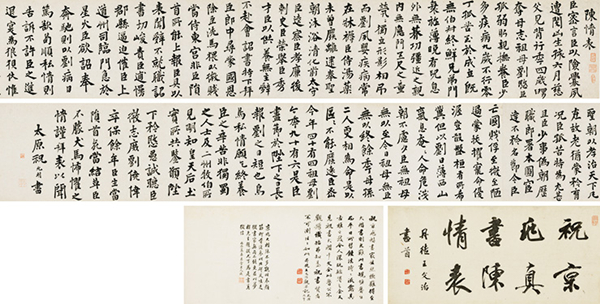 陳情表
臣密言臣以險釁夙
遭閔凶生孩六月慈
父見背行年四歲舅
奪母志祖母劉愍臣
孤弱躬親撫養臣少
多疾病九歲不行零
丁孤苦至於成立既
無伯叔終鮮兄弟門
衰祚薄晚有兒息外
無朞功強近之親
內無應門五尺之童
煢煢獨立形影相弔
而劉夙嬰疾病常
在牀褥臣侍湯藥
未曾廢離逮奉聖
朝沐浴清化前太守
臣逵察臣孝廉後
刺史臣榮舉臣秀
才臣以供養無主辭
不赴會詔書特下拜
臣郎中尋蒙國恩
除臣洗馬猥以微賤
當侍東宮非臣隕
首所能上報臣具以
表聞辭不就職詔
書切峻責臣逋慢
郡縣逼迫催臣上
道州司臨門急於
星火臣欲詔奉
奔馳則以劉病日
篤欲苟順私情則
告訴不許臣之進
退實為狼狽伏惟
聖朝以孝治天下凡
在故老猶蒙矜育
況臣孤苦特為尤甚
且臣少事偽朝歷
職郎署本圖宦
達不矜名節今臣
亡國賤俘至微至陋
過蒙拔擢寵命優
渥豈敢盤桓有所希
冀但以劉日薄西山
氣息奄奄人命危淺
朝不慮夕臣無祖母
無以至今日祖母無臣
無以終餘年母孫
二人更相為命是以
區區不能廢遠臣密
今年四十有四祖母劉
今年九十有六是臣
盡節於陛下之日長
報劉之日短也烏
鳥私情願乞終養
臣之辛苦非獨蜀
之人士及二州牧伯所
見明知皇天后土
實所共鑒願陛
下矜愍愚誠聽臣
微志庶劉僥倖
卒保餘年臣生當
隕首死當結草臣
不勝犬馬怖懼之
情謹拜表以聞
太原祝允明書
祝京
兆真
書陳
情表
丹徒王文治
書首